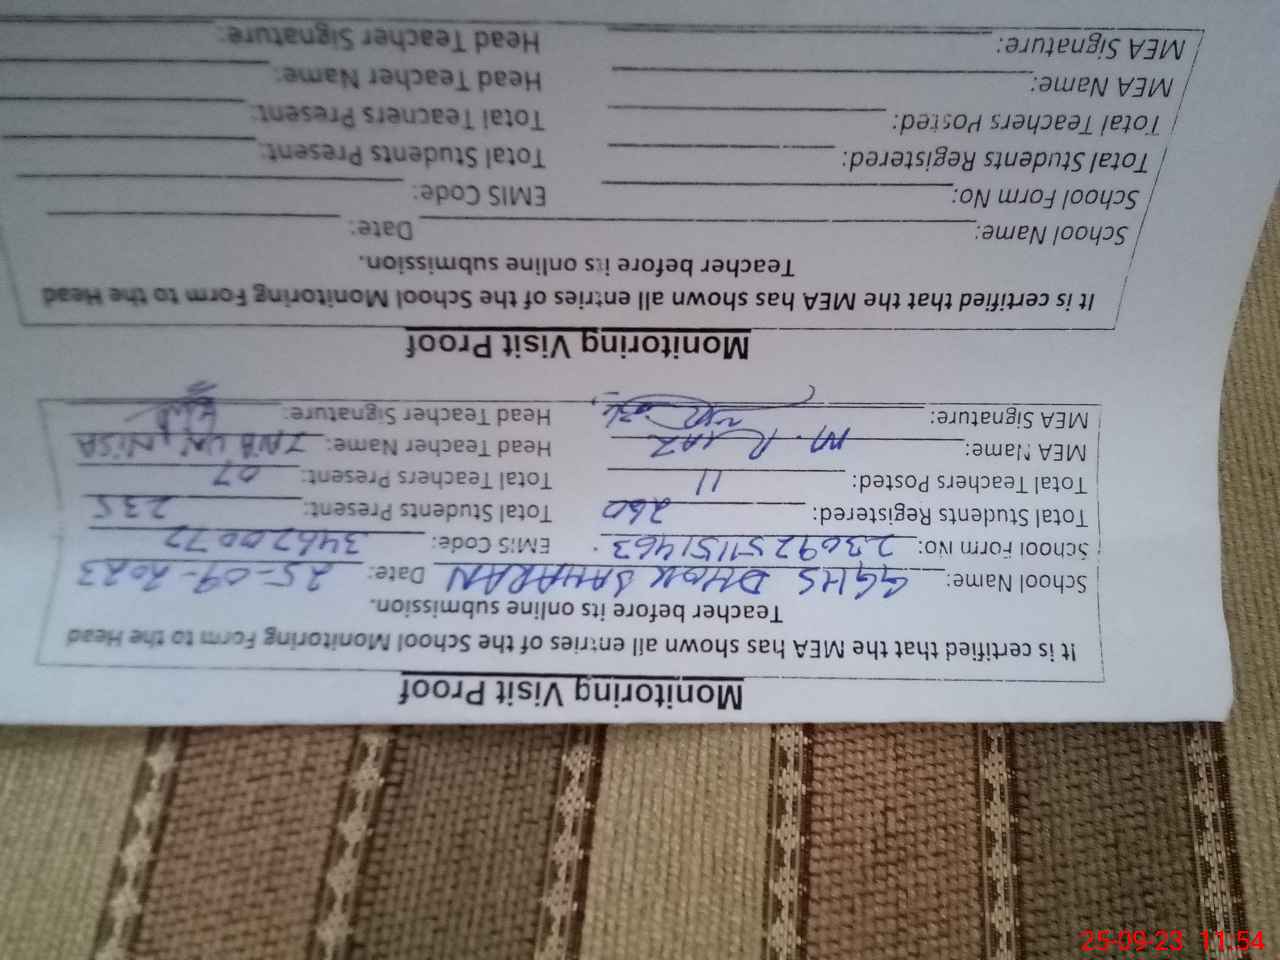 Monitoring Visit Proof
It is certified that the MEA has shown all entries of the School Monitoring Form to the Head
Teacher before its online submission.
School Name: GGHS DHOK SAHARAN Date: 25-09-2023
School Form No: 230925115151463 EMIS Code: 34620072
Total Students Registered: 260 Total Students Present: 235
Total Teachers Posted: 11 Total Teachers Present: 07
MEA Name: M. RIAZ Head Teacher Name: ZAIB UN NISA
MEA Signature: Head Teacher Signature:
Monitoring Visit Proof
It is certified that the MEA has shown all entries of the School Monitoring Form to the Head
Teacher before its online submission.
School Name: Date:
School Form No: EMIS Code:
Total Students Registered: Total Students Present:
Total Teachers Posted: Total Teachers Present:
MEA Name: Head Teacher Name:
MEA Signature: Head Teacher Signature:
25-09-23 11:54